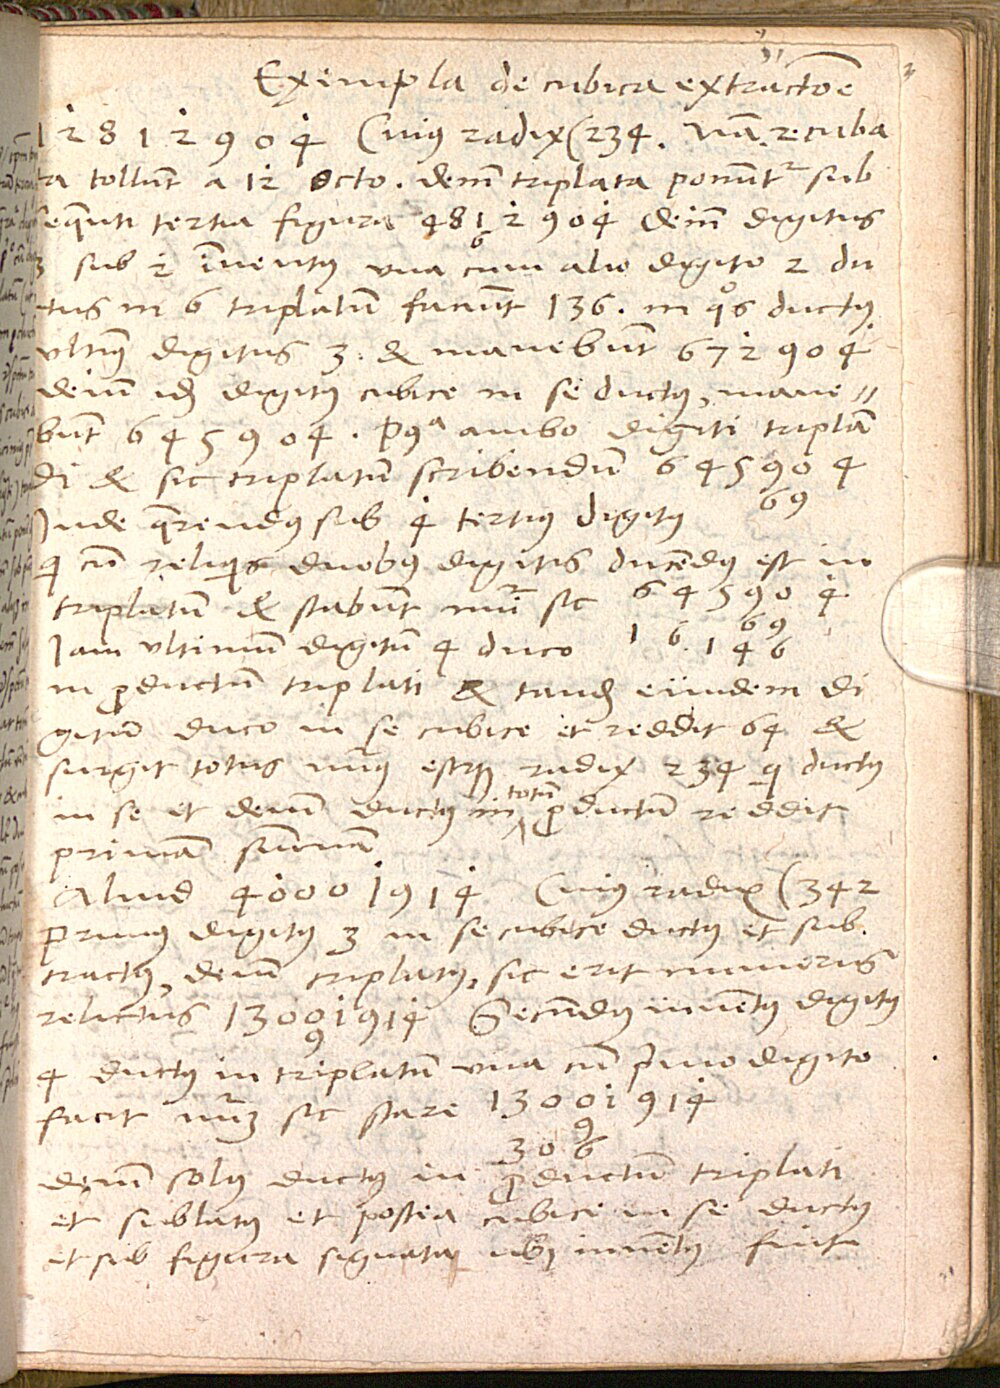 Exempla de cubica extractõe
12812904 Cuius radix (234. Nã. 2 cuba
ta tollũt a 12 octo. deiñ triplata ponũtr sub
sequẽti tertia figura 4812904 deiñ digitus
6
3 sub 2 inventus una cum alio digito 2 du
ctus in 6 triplatũ faciũt 136. in qos ductus
ultimus digitus 3. & manebũt 672904
deiñ idẽ digitus cubice in se ductus, mane //
bũt 645904. P9a ambo digiti triplã
di & sic triplatũ scribendũ 645904
69
Inde querendus sub 4 tertius digitus
q cũ reliquis duobus digitis ducẽdus est in
triplatũ & stabũt nũri sic 645904
69
Iam ultimum digitũ 4 duco 16.146
in productũ triplati & tandẽ eundem di
gitũ duco in se cubice et reddit 64 &
surgit totus nũus estq radix 234 q ductus
in se et deiñ ductus in totũ productũ reddit
primã sũmã
Aliud 40001914 Cuius radix (342
primus digitus 3 in se cubice ductus et sub.
tractus, deiñ triplatus, sic erit numerus
relictus 13001914 Secũdus inventus digitus
9
4 ductus in triplatũ una cũ primo digito
facit nũm sic stare 13001914
9
306
deiñ solus ductus in productũ triplati
et sublatus et postea cubice in se ductus
et sub figura signata ubi invẽtus fuit